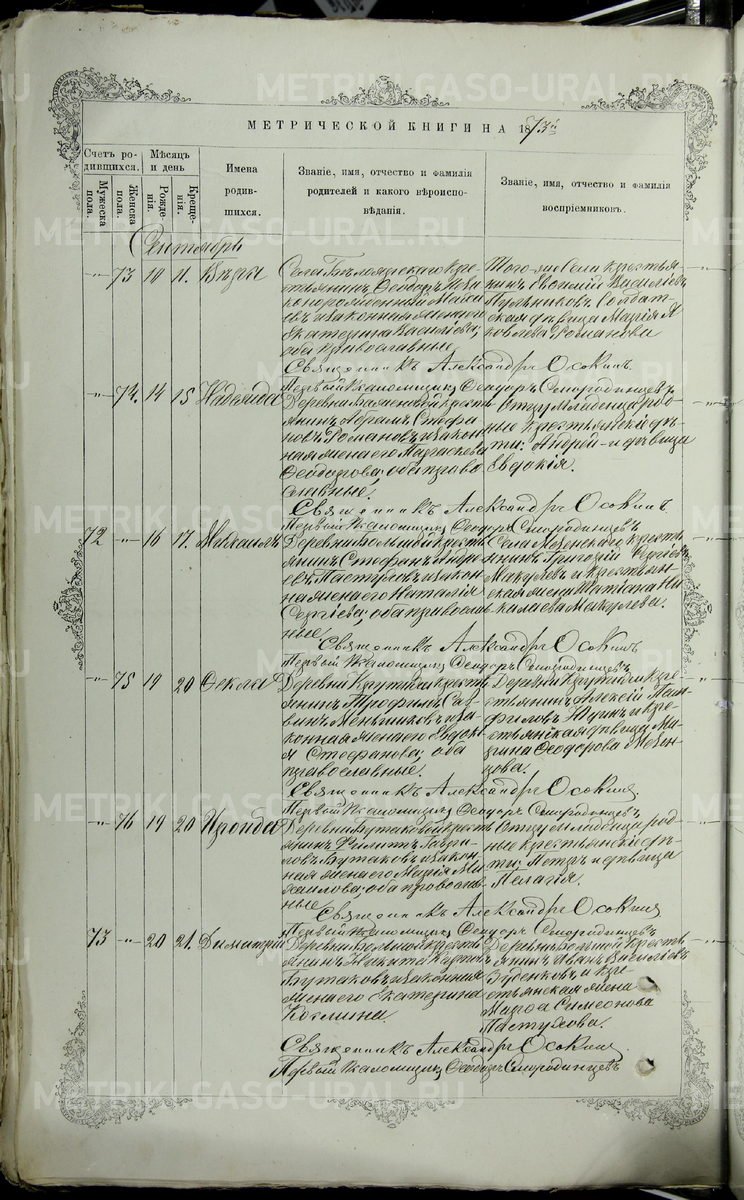 МЕТРИЧЕСКОЙ КНИГИ НА 1873й
Счетъ ро-
дившихся.
Мужеска
пола.
Женска
пола.
Мѣсяцъ
и день
Рожде-
нія.
Креще-
нія.
Имена
родив-
шихся.
Званіе, имя, отчество и фамилія
родителей и какого вѣроиспо-
вѣданія.
Званіе, имя, отчество и фамилія
воспріемниковъ.
Сентябрь
73 10 11. Вѣра
Села
Екатерина Васильева;
оба православные
Того же Села крестья
нинъ Евфимій Василіевъ
Мельниковъ Солдат
ская дѣвица Марія Я
ковлева Романова
Священникъ Александръ Осокинъ.
Первый Псаломщикъ Феодоръ Смородинцевъ
74. 14 15 Надежда
Деревни крестъ
янинъ Абрамъ Стефа
новъ Романовъ и закон
ная жена его Параскева
Феодорова; оба право
славные.
Отцу младенца род
ные крестьянскіе дѣ
ти: Андрей и дѣвица
Евдокія.
Священникъ Александръ Осокинъ.
Первый Псаломщикъ Феодоръ Смородинцевъ
72 16 17. Михаилъ
Деревни Большой кресть
янинъ Стефанъ Андре
евъ и закон
ная жена его Наталія
Сергіева; оба православ
ные
Села Мезенскаго кресть
янинъ Григорій Сергіевъ
Макулевъ и крестьян
ская жена Татіана Ни
колаева Макулева.
Священникъ Александръ Осокинъ
Первый Псаломщикъ Феодоръ Смородинцевъ
75 19 20 Фекла
Деревни Крутихи кресть
янинъ Трофимъ Сав
винъ Меньшиковъ и за
конная жена его Евдокі
я Стефанова; оба
православные.
Деревни Крутихи кре
стьянинъ Алексій Пам
филовъ и кре
стьянская дѣвица Ма
рина Феодорова Мезен
цова.
Священникъ Александръ Осокинъ
Первый Псаломщикъ Феодоръ Смородинцевъ
76 19 20 Ираида
Деревни Бутаковой кресть
янинъ Филиппъ Гаври
ловъ Бутаковъ и закон
ная жена его Марія Ми
хаилова; оба православ
ные
Отцу младенца род
ные крестьянскіе дѣ
ти; Петръ и дѣвица
Пелагія.
Священникъ Александръ Осокинъ
Первый Псаломщикъ Феодоръ Смородинцевъ
73 20 21. Димитрій
Деревни Большой кресть
янинъ Никита Карпо
Бутаковъ и законная
жена его Екатерина
Козмина.
Деревни Большой кресть
янинъ Иванъ Василіевъ
Зубенковъ и кре
стьянская жена
Марѳа Симеонова
Пастухова.
Священникъ Александръ Осокинъ
Первый Псаломщикъ Феодоръ Смородинцевъ
METRIKI.GASO-URAL.RU